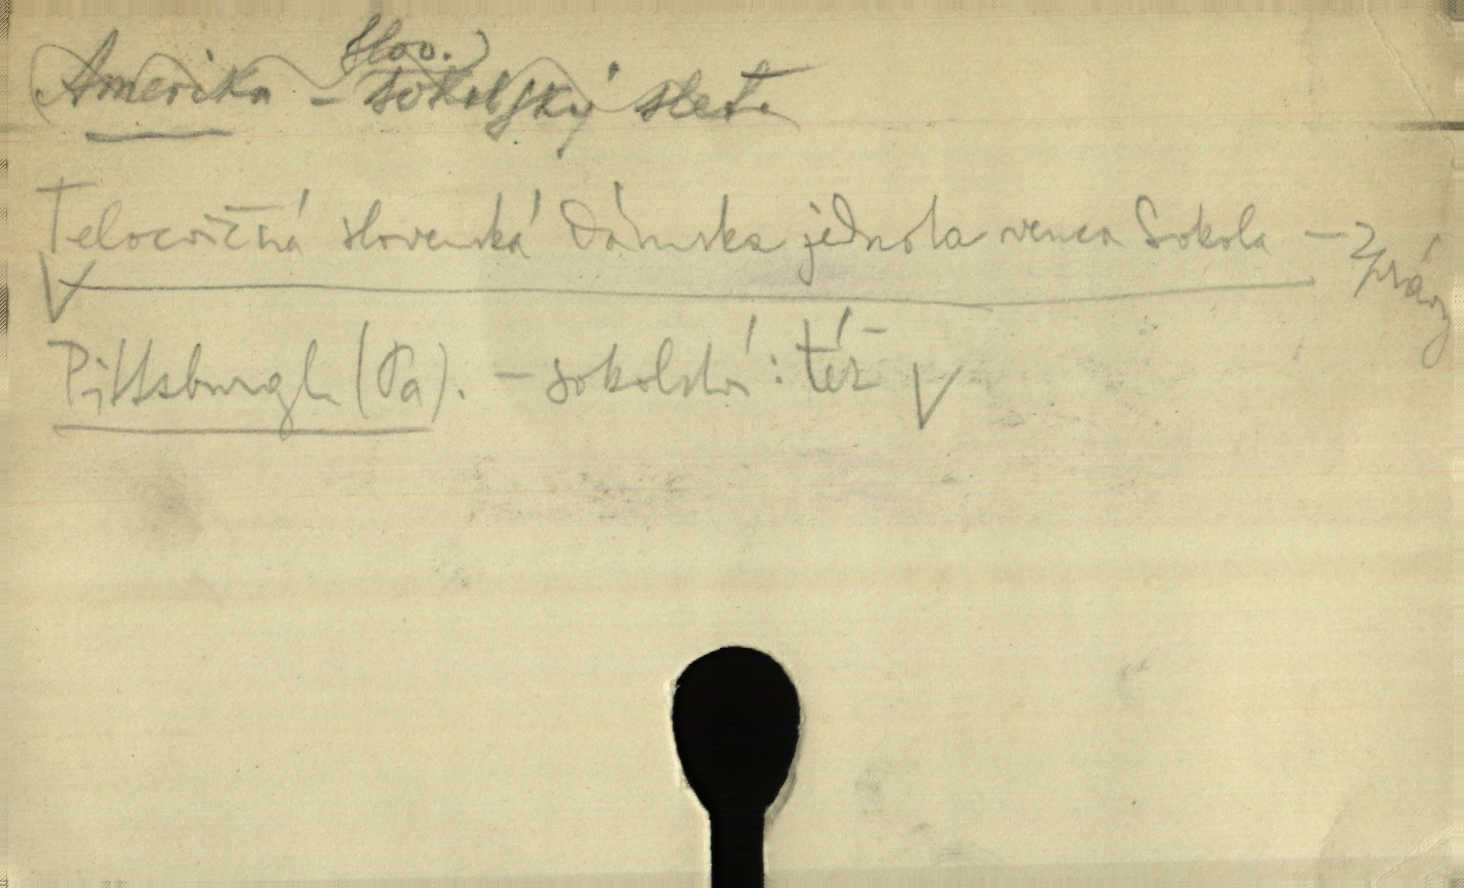 Amerika - slov. sokolský slet.
Telocvičná slovenská Dámska jednota venca Sokola - zprávy
Pittsburgh (Pa). - sokolstvo: též